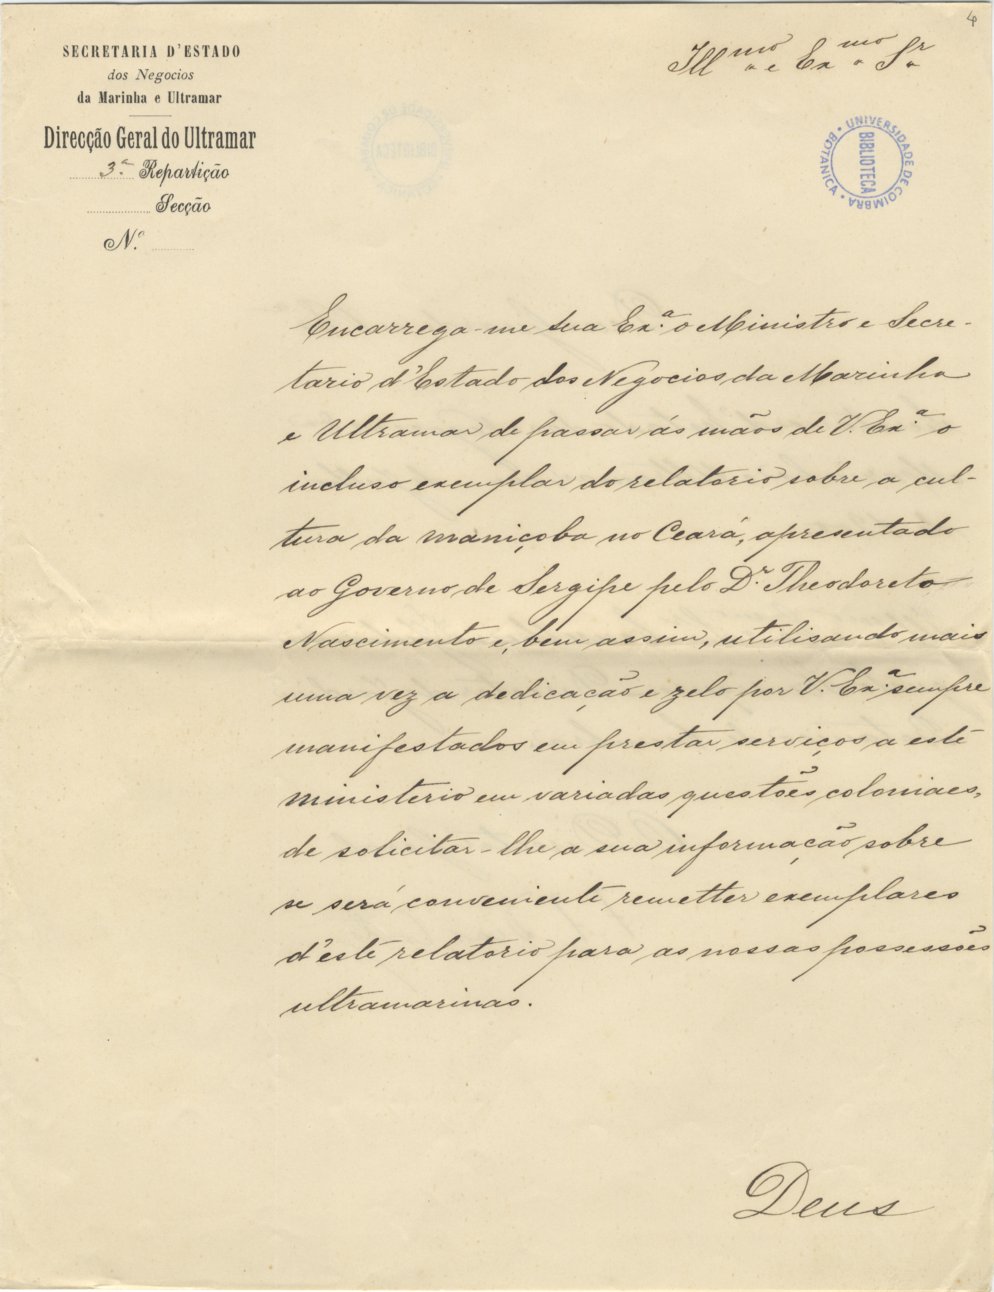 4
SECRETARIA D'ESTADO
dos Negocios
da Marinha e Ultramar
Direcção Geral do Ultramar
3.ª Repartição
Secção
N.º
Ill.mo e Ex.mo Sr.
UNIVERSIDADE DE COIMBRA • BOTANICA •
BIBLIOTECA
Encarrega-me Sua Ex.ª o Ministro e Secre-
tario d'Estado dos Negocios da Marinha
e Ultramar de passar ás mãos de V. Ex.ª o
incluso exemplar do relatorio sobre a cul-
tura da maniçoba no Ceará, apresentado
ao Governo de Sergipe pelo D.r Theodoreto
Nascimento e, bem assim, utilisando mais
uma vez a dedicação e zelo por V. Ex.ª sempre
manifestados em prestar serviços a este
ministerio em variadas questões coloniaes,
de solicitar-lhe a sua informação sobre
se será conveniente remetter exemplares
d'este relatorio para as nossas possessões
ultramarinas.
Deus